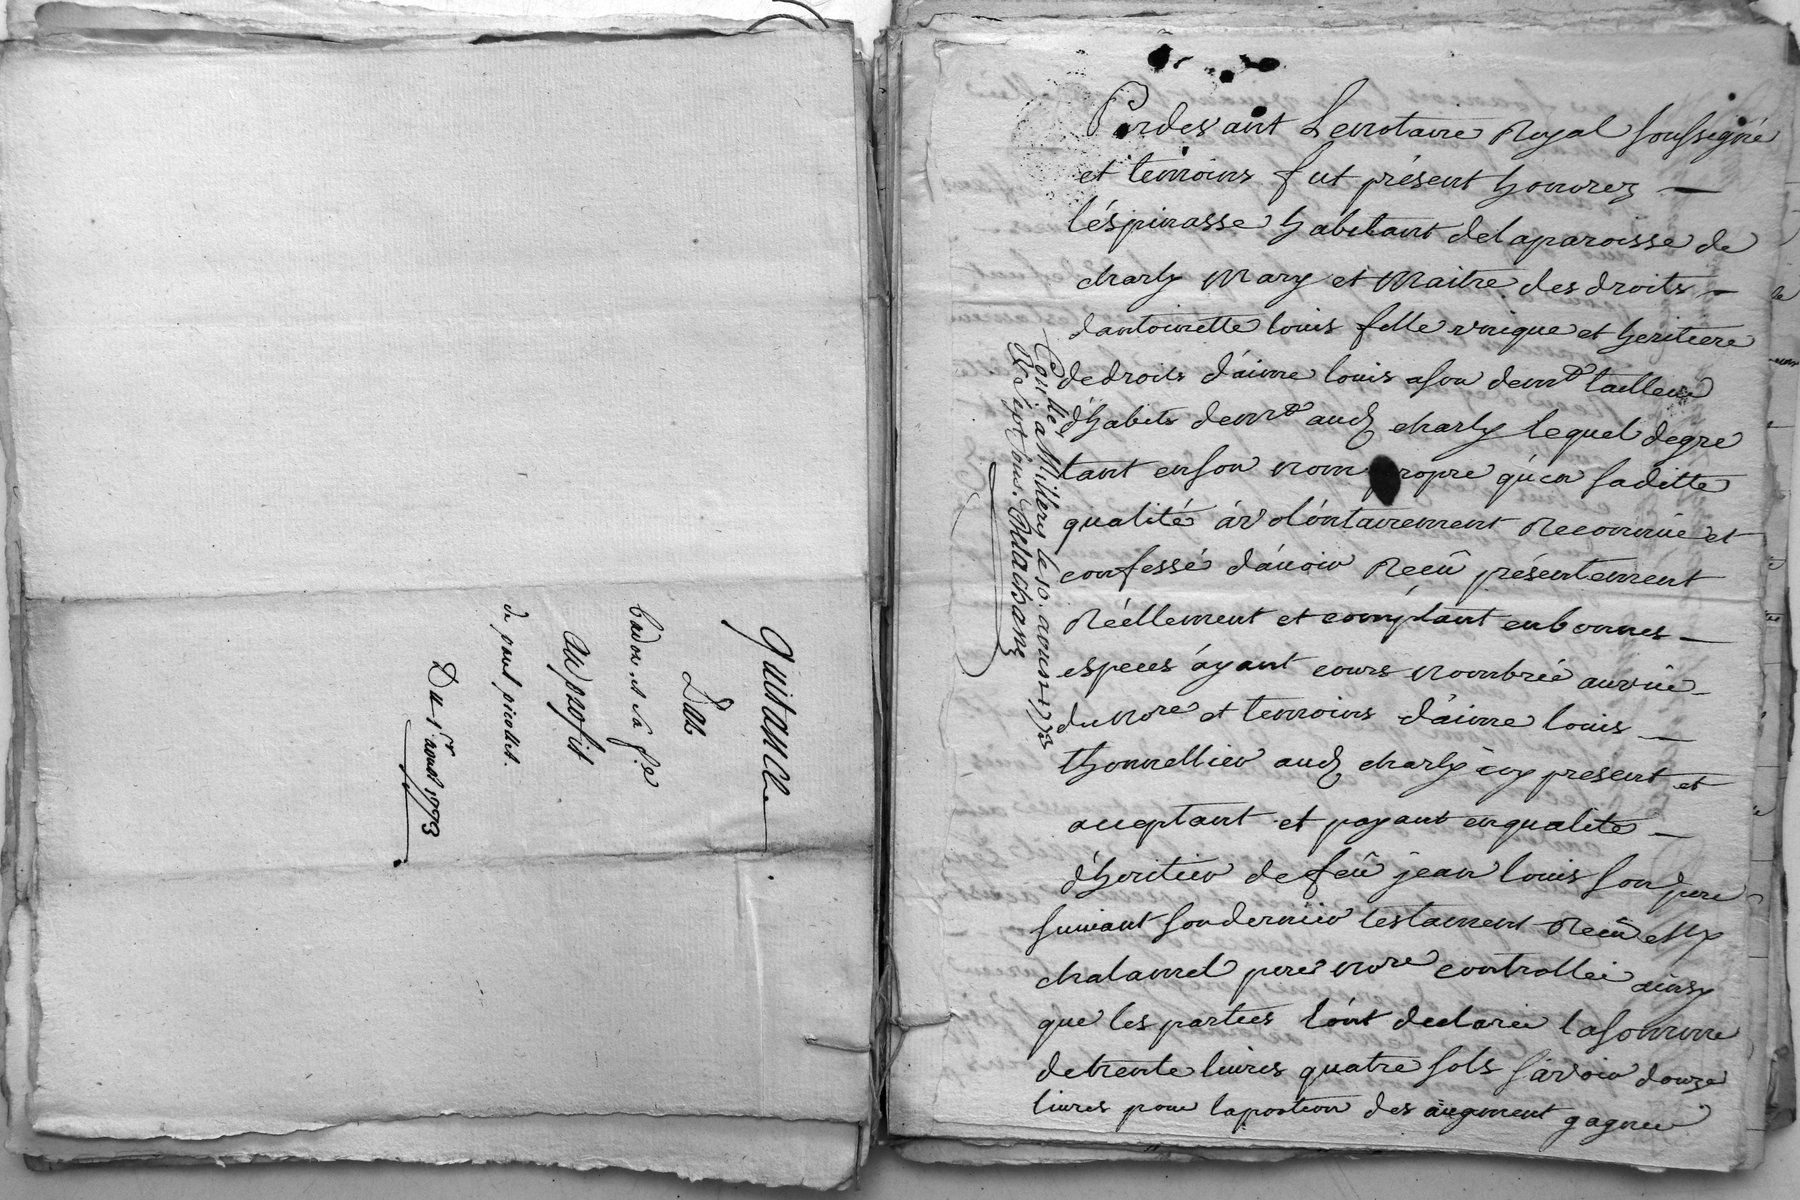 quitance
Par
badou et sa fe
au profit
de pont picolet.
Du 1er aoust 1773
Pardevant Lenotaire Royal soussigné
et temoins fut présent honorez
léspinasse habitant delaparoisse de
charly mary et maitre des droits
dantoinette louis fille unique et heritiere
dedroits d'aime louis asou demt tailleur
d'habits demt aud charly lequel degre
tant enson nom propre qu'en saditte
qualité a volontairement Reconnue et
confessé d'auoir Recû présentement
Réellement et comptant enbonnes
especes áyant cours nombrée auvüe
du nore et temoins d'aime louis
thonnellier aud charly icy present et
acceptant et payant enqualité
d'heritier defeû jean louis son pere
suivant sondernier testament Recû Me
chalamel pere nore controllée ainsy
que les parties l'ont declarée lasomme
detrente livres quatre sols sávoir douze
livres pour laportion des augment gagnée
Conllé a Millery le 10. aoust 1773
R. sept sous. Delachane